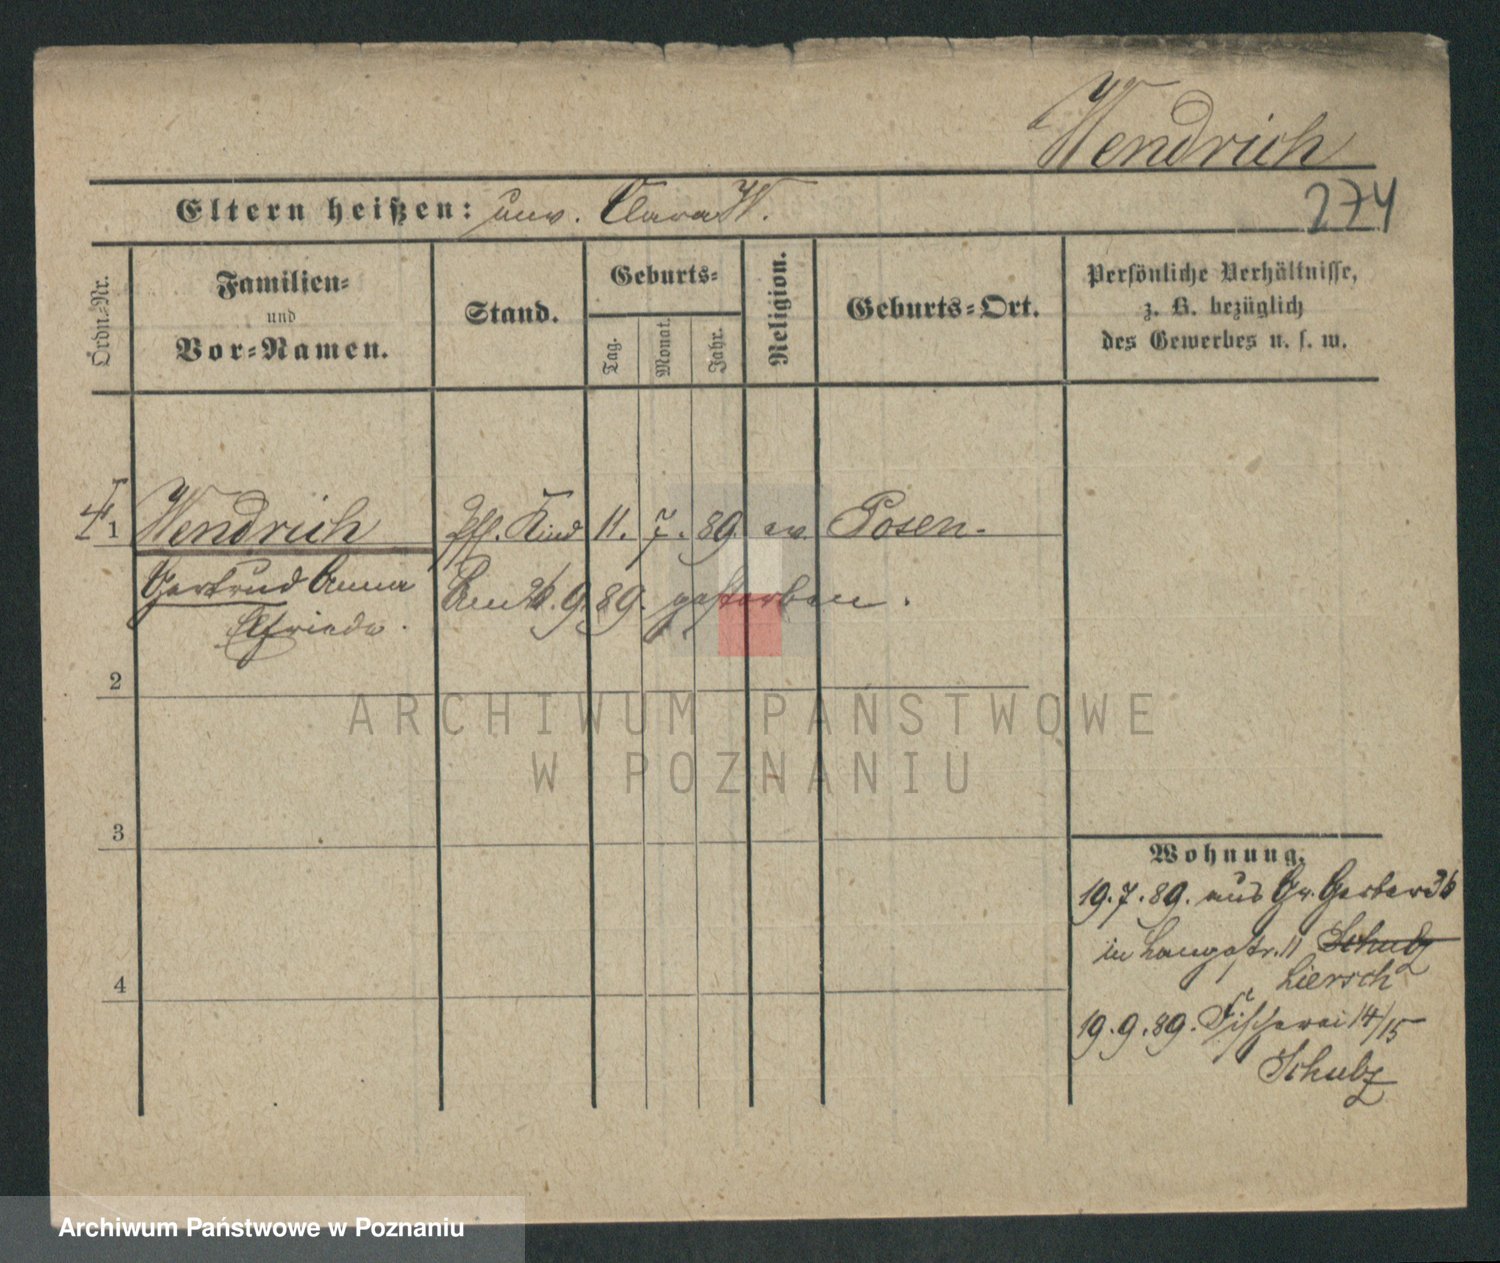 Wendrich
Eltern heißen: unv. Clara W.
274
Ordn.-Nr.
Familien-
und
Vor-Namen.
Stand.
Geburts-
Tag.
Monat.
Jahr.
Religion.
Geburts-Ort.
Persönliche Verhältnisse,
z. B. bezüglich
des Gewerbes u. s. w.
1 Wendrich Pfl. Kind 11. 7. 89. ev. Posen.
Gertrud Anna Am 26. 9. 89. gestorben.
Elfriede.
2
3
4
Wohnung.
19. 7. 89. aus Gr. Gerber 36
in Langestr. 11 Schulz
Liersch
19. 9. 89. Fischerei 14/15
Schulz
ARCHIWUM PAŃSTWOWE
W POZNANIU
Archiwum Państwowe w Poznaniu